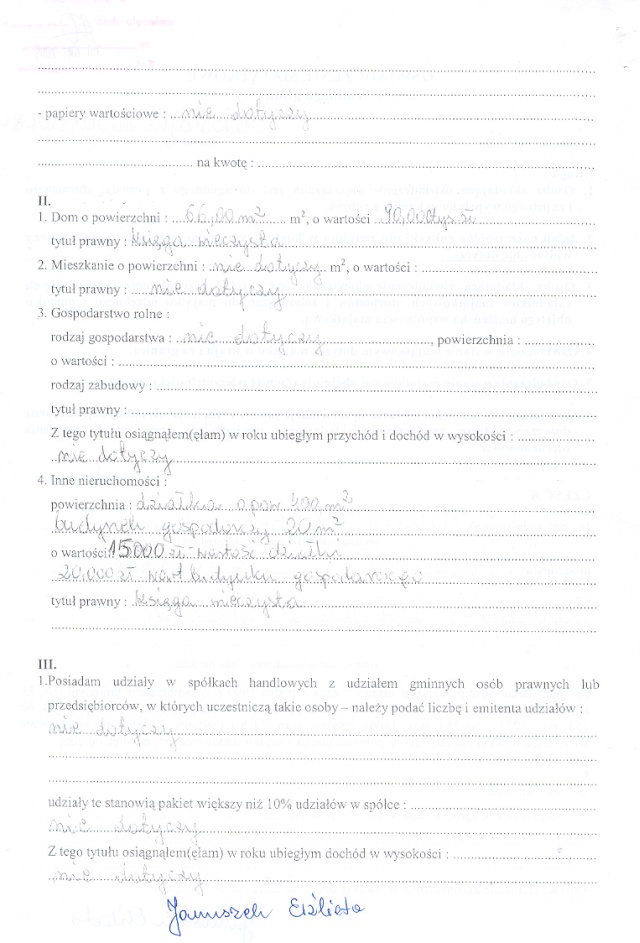 - papiery wartościowe : nie dotyczy
na kwotę :
II.
1. Dom o powierzchni : 66,00 m² m², o wartości : 90,000tys zł
tytuł prawny : księga wieczysta
2. Mieszkanie o powierzchni : nie dotyczy m², o wartości :
tytuł prawny : nie dotyczy
3. Gospodarstwo rolne :
rodzaj gospodarstwa : nie dotyczy, powierzchnia :
o wartości :
rodzaj zabudowy :
tytuł prawny :
Z tego tytułu osiągnąłem(ęłam) w roku ubiegłym przychód i dochód w wysokości :
nie dotyczy
4. Inne nieruchomości :
powierzchnia : działka o pow m²
budynek gospodarczy 20 m²
o wartości: 15000 zł wartość działki
20,000 zł wart budynku gospodarczego
tytuł prawny : księga wieczysta
III.
1.Posiadam udziały w spółkach handlowych z udziałem gminnych osób prawnych lub
przedsiębiorców, w których uczestniczą takie osoby – należy podać liczbę i emitenta udziałów :
nie dotyczy
udziały te stanowią pakiet większy niż 10% udziałów w spółce :
nie dotyczy
Z tego tytułu osiągnąłem(ęłam) w roku ubiegłym dochód w wysokości :
nie dotyczy
Januszek Elżbieta